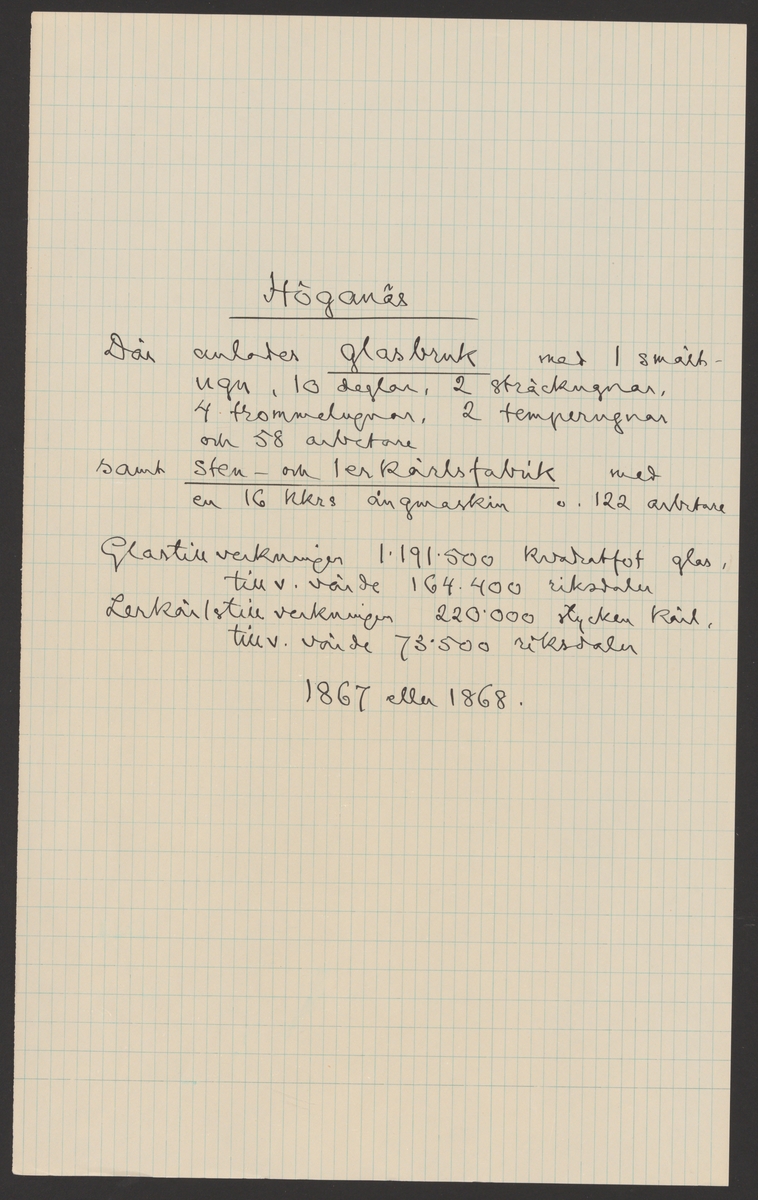 Höganäs
Där anlades glasbruk med 1 smält-
ugn, 10 deglar, 2 sträckugnar,
4 trommelugnar, 2 temperugnar
och 58 arbetare
samt sten- och lerkärlsfabrik med
en 16 hkrs ångmaskin o. 122 arbetare
Glastillverkningen 1.191.500 kvadratfot glas,
tillv. värde 164.400 riksdaler
Lerkärlstillverkningen 220.000 stycken kärl,
tillv. värde 73.500 riksdaler
1867 eller 1868.